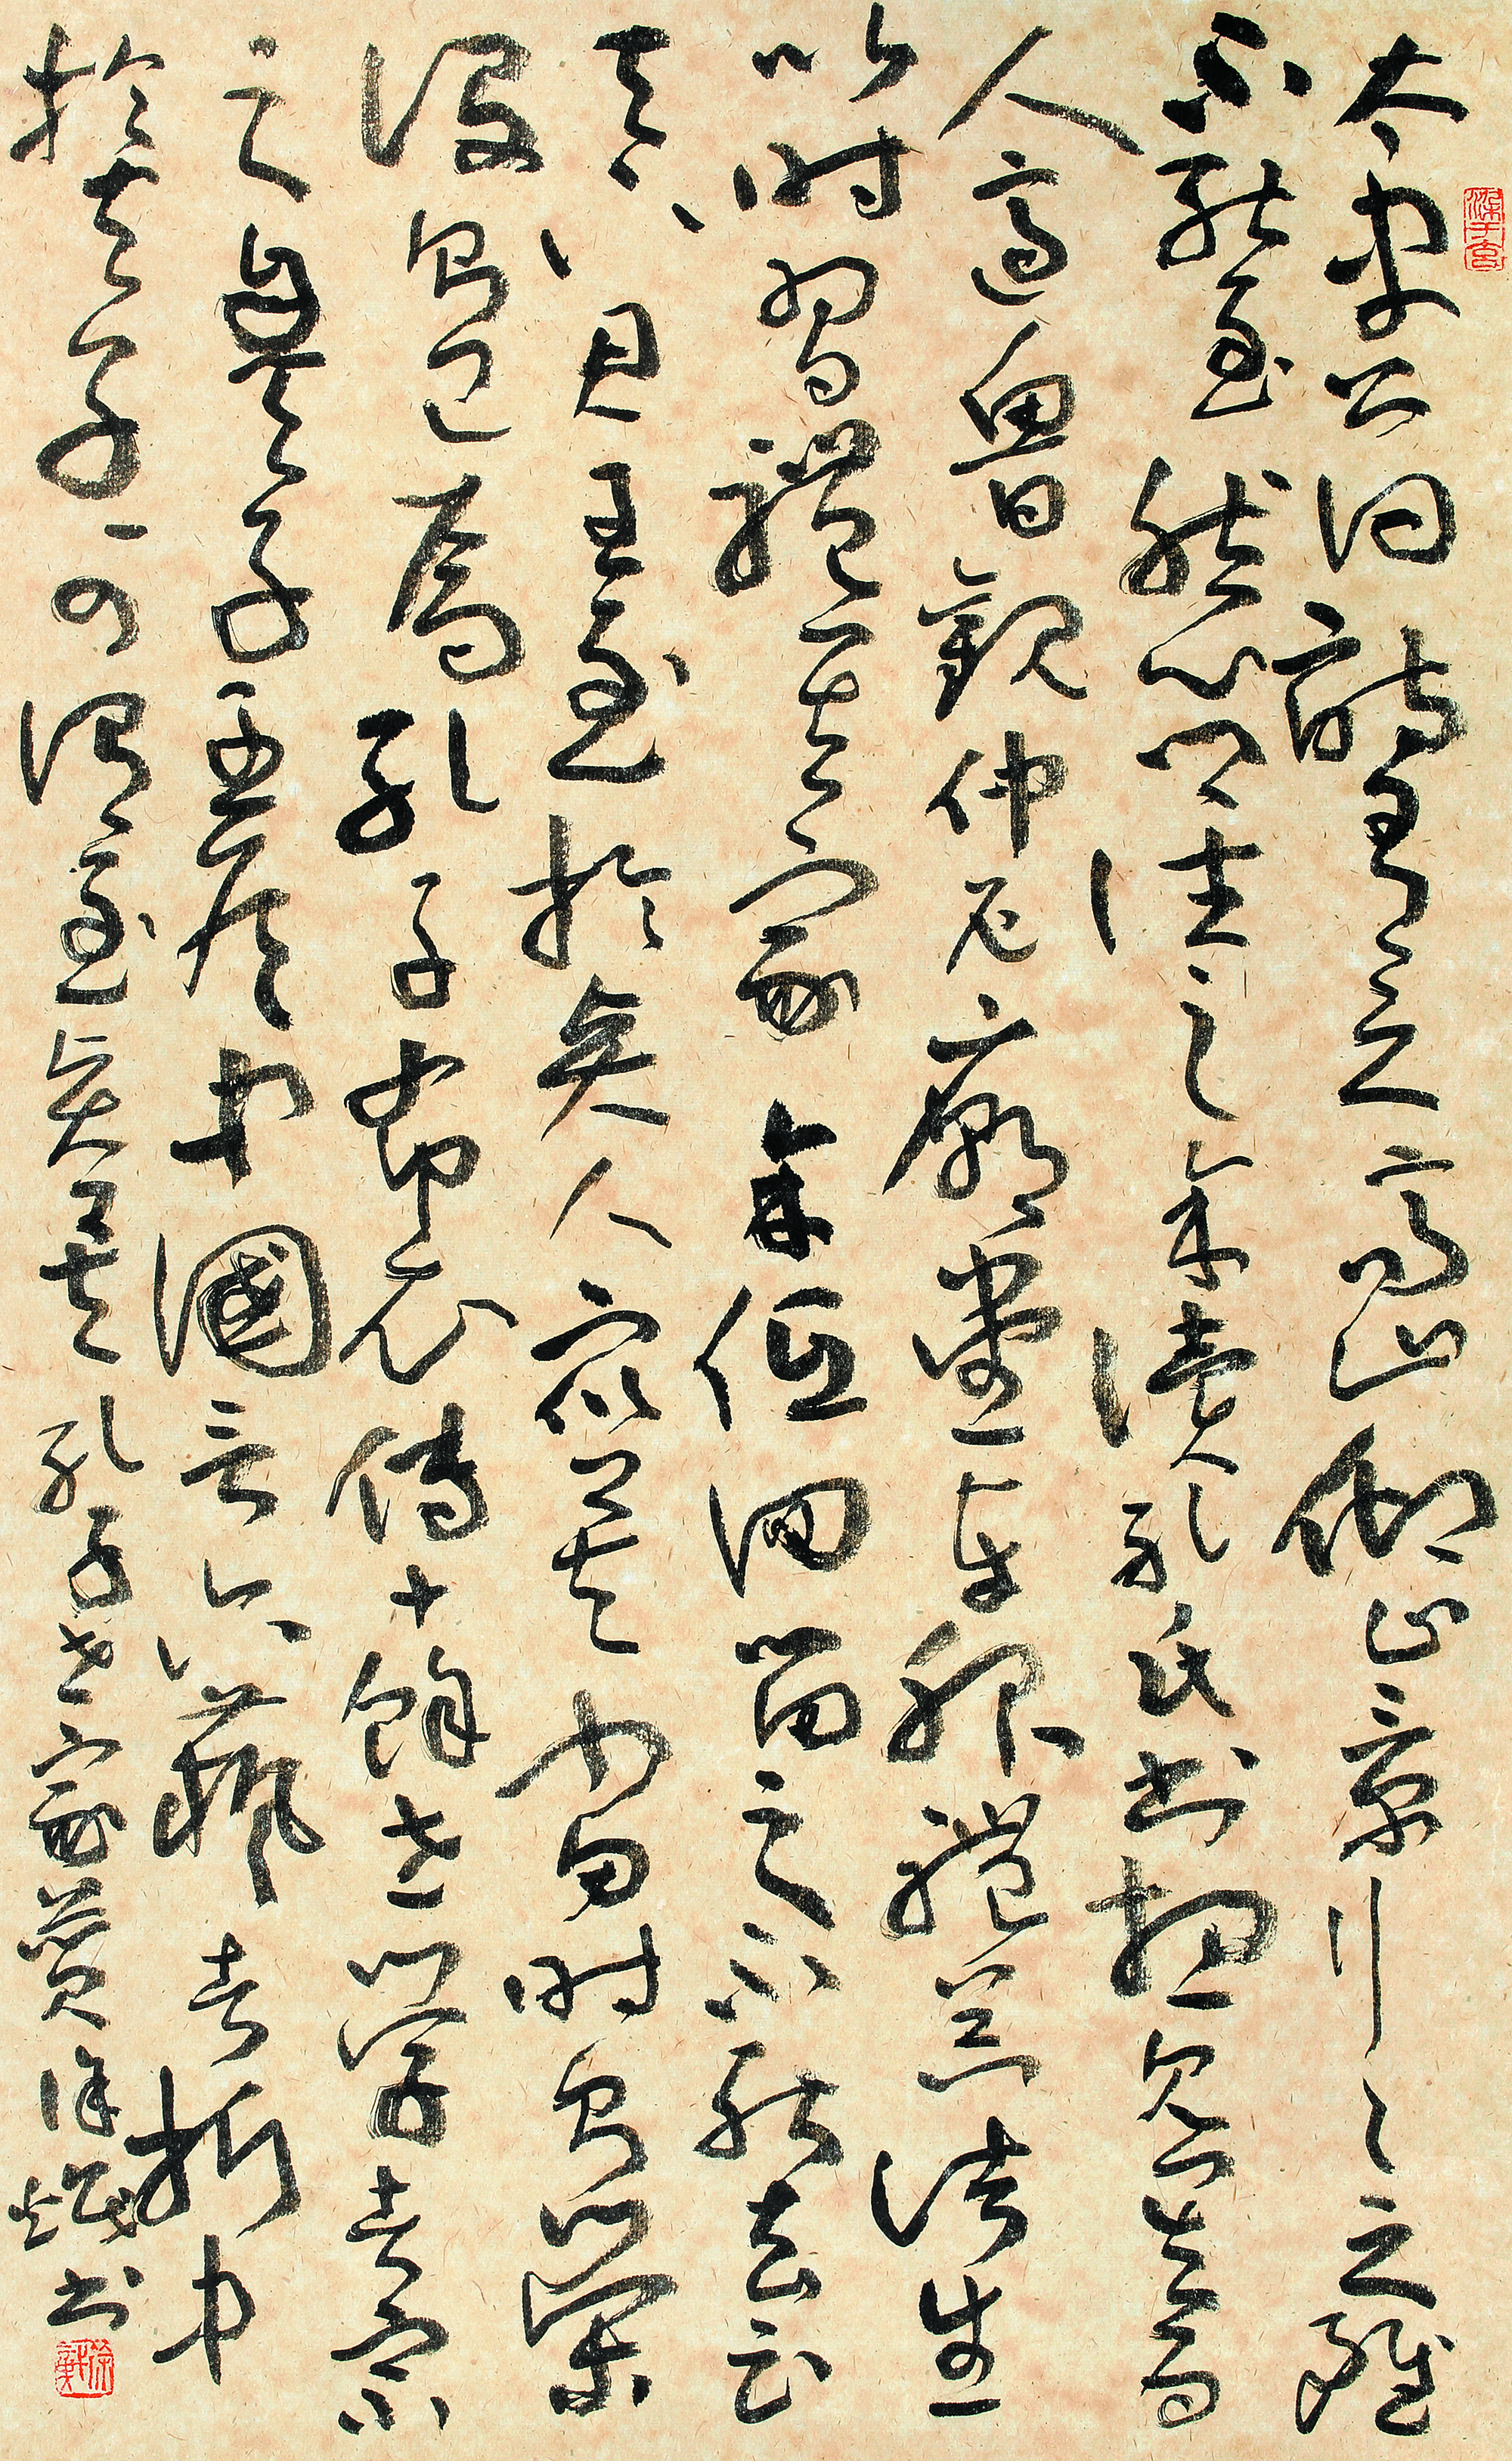 太史公曰詩有之高山仰止景行々止雖
不能至然心鄉往之余讀孔氏書想見其為
人適魯觀仲尼廟堂車服禮器諸生
以時習禮其家余低回留之不能去云
天下君王至於賢人眾矣當時則榮
沒則已焉孔子布衣傳十餘世學者宗
之自天子王侯中國言六藝者折中
於夫子可謂至聖矣孔子世家贊徐書